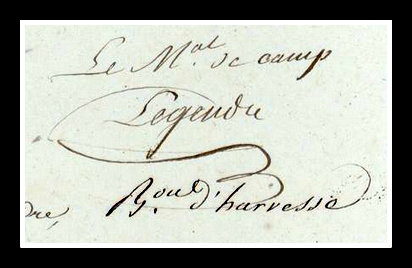 Le Mal de camp
Legendre
dre, Bon d'harvesse